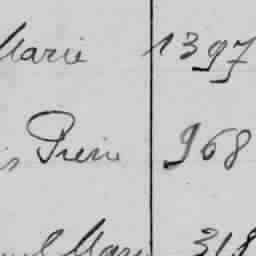 Marie 1397
Pierre 968
Marie 318